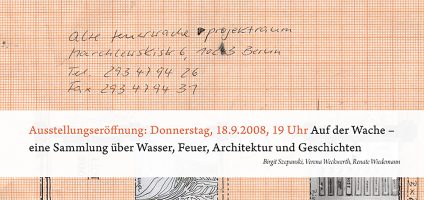 Alte feuerwache projektraum
Marchlewskistr 6, 10243 Berlin
Tel. 293 47 94 26
Fax 293 47 94 31
Ausstellungseröffnung: Donnerstag, 18.9.2008, 19 Uhr Auf der Wache –
eine Sammlung über Wasser, Feuer, Architektur und Geschichten
Birgit Szepanski, Verena Weckwerth, Renate Wiedemann